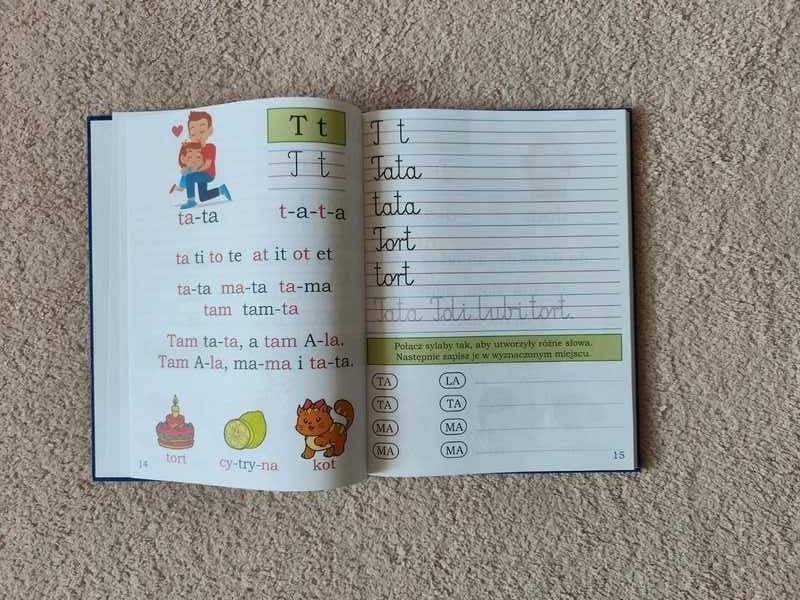 T t
T t
ta-ta
t-a-t-a
ta ti to te at it ot et
ta-ta ma-ta ta-ma
tam tam-ta
Tam ta-ta, a tam A-la.
Tam A-la, ma-ma i ta-ta.
tort
cy-try-na
kot
14
T t
Tata
tata
Tort
tort
Tata Idi lubi tort.
Połącz sylaby tak, aby utworzyły różne słowa.
Następnie zapisz je w wyznaczonym miejscu.
TA LA
TA TA
MA MA
MA MA
15